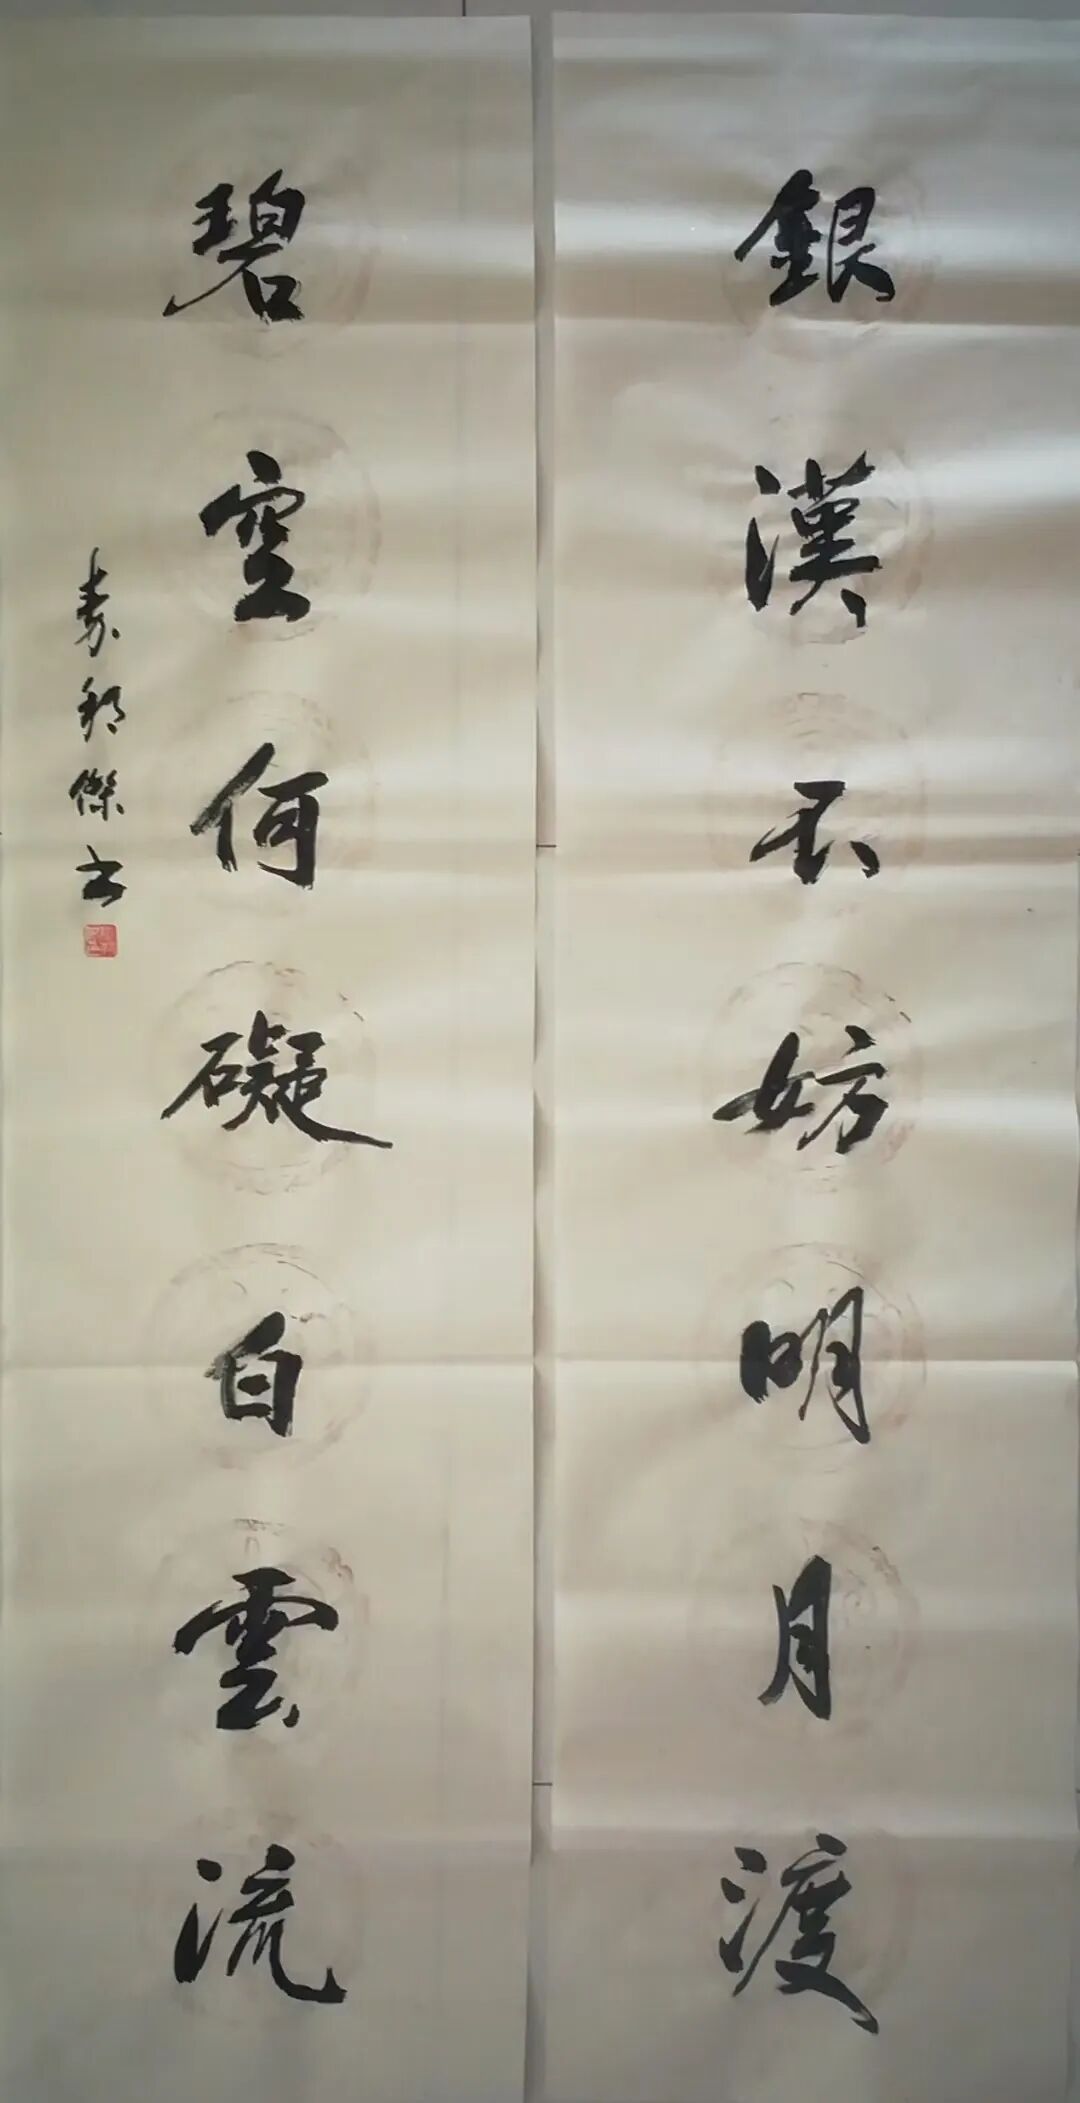 銀漢不妨明月渡
碧空何礙白雲流
傑書